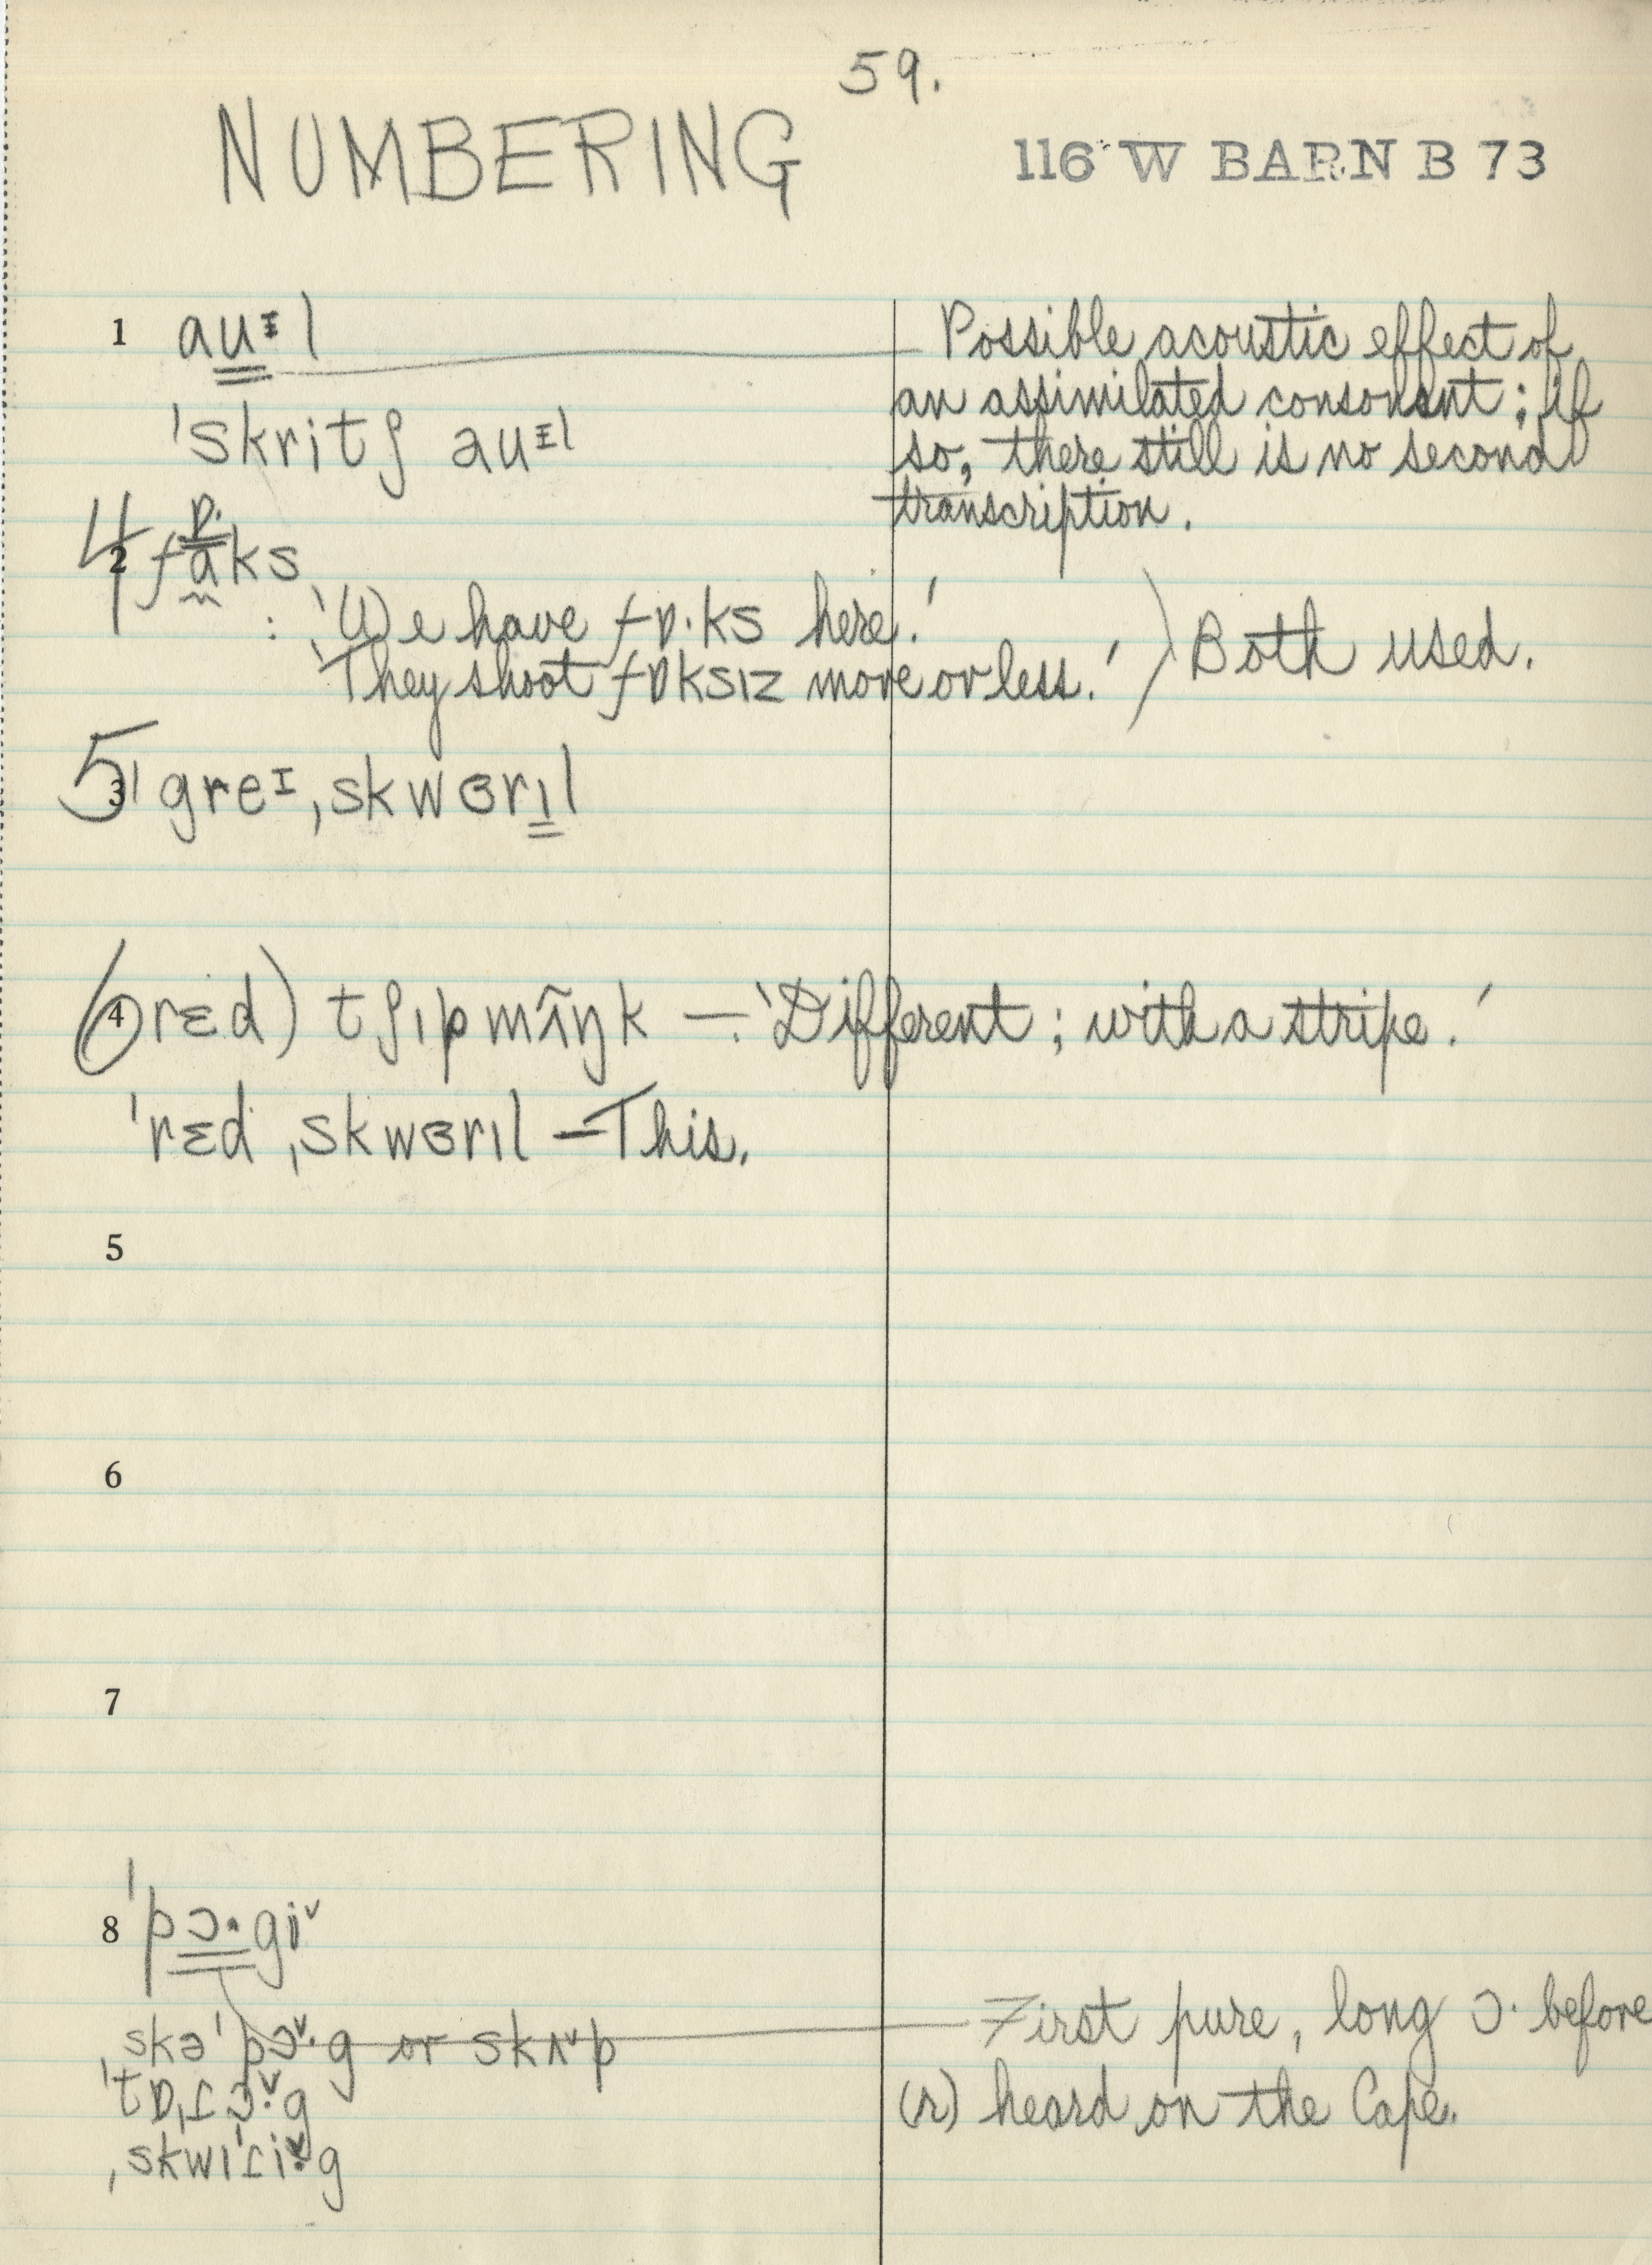 59.
NUMBERING
116 W BARN B 73
1 auᵻl
ˈskritʃ auᵻl
Possible acoustic effect of
an assimilated consonant; if
so, there still is no second
transcription.
ɒ·
4 2 faks
: 'We have fɒ·ks here.'
'They shoot fɒksɪz more or less.' ) Both used.
5 3 ˈgreɪˌskwɜrɪl
6 4 rɛd) tʃɪpmʌ̃ŋk — 'Different; with a stripe.'
ˈrɛd ˌskwɜrɪl — This.
5
6
7
8 ˈpɔ·giˇ
ˌskəˈpɔˇ·g or skʌˇp
First pure, long ɔ· before
(r) heard on the Cape.